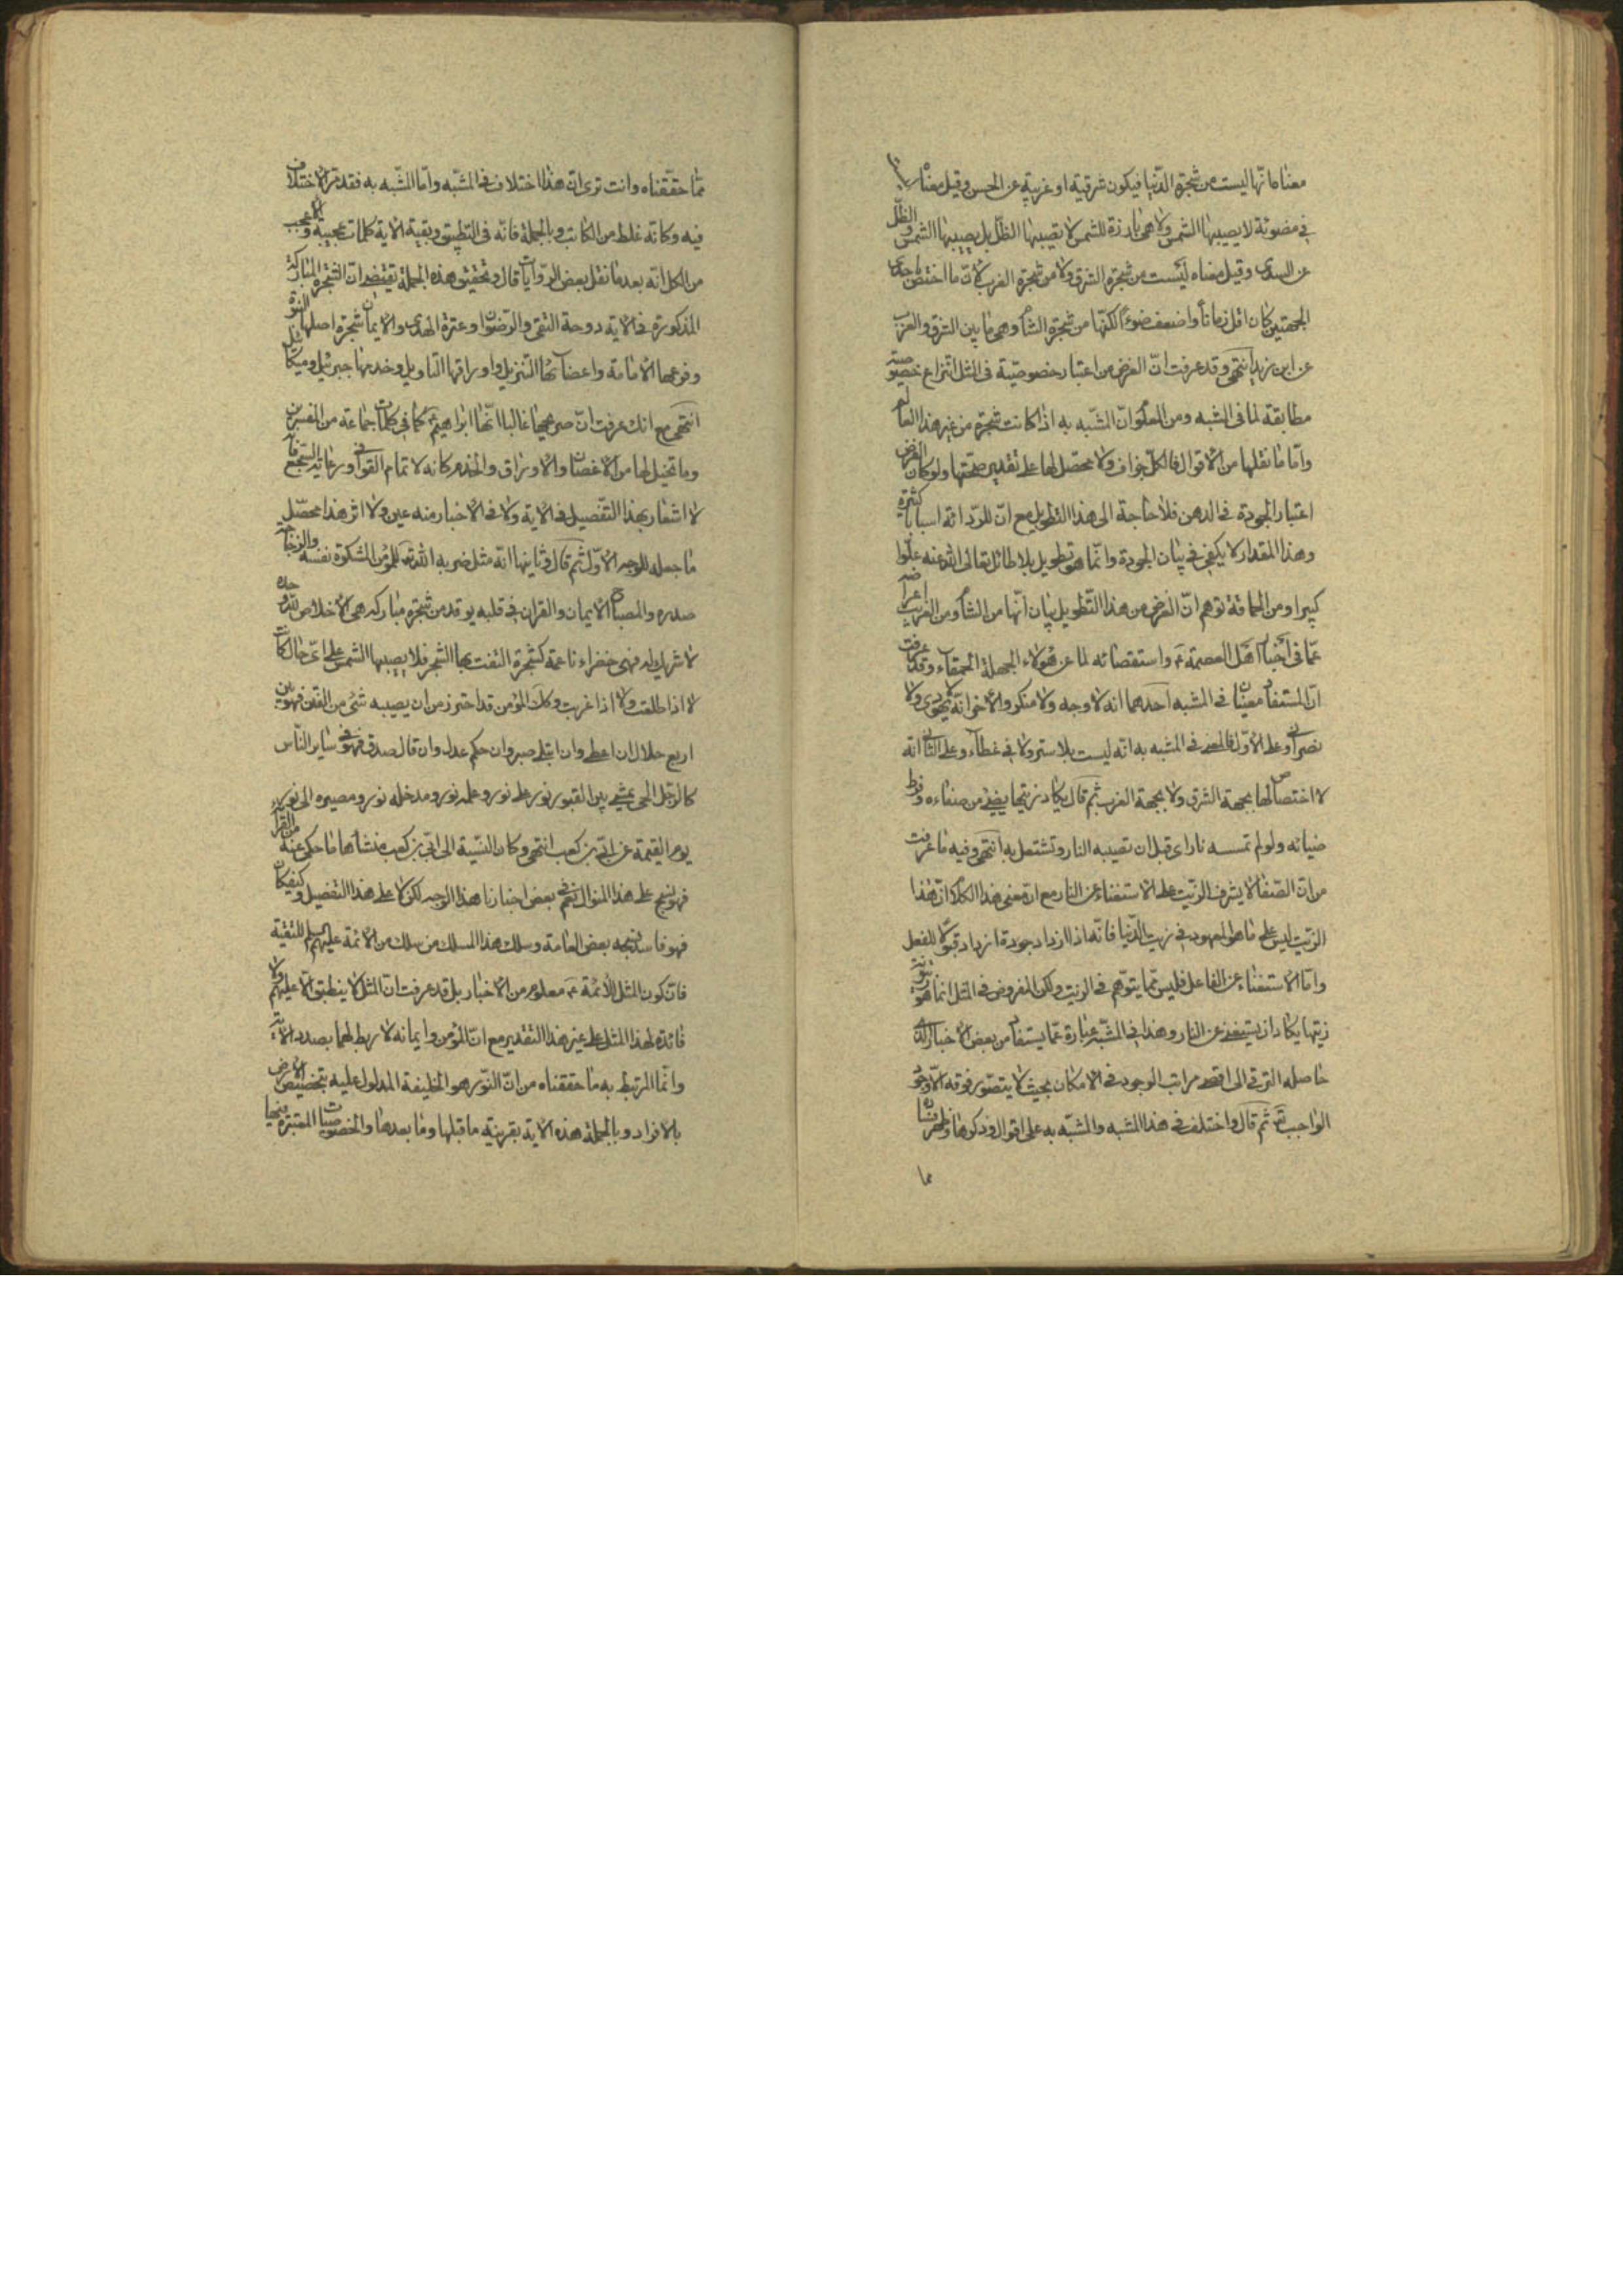 معناه انّها ليست من شجرة الدّنيا فيكون شرقية او غربية عن الحسن وقيل معناه
في مضوئة لا يصيبها الشمس ولا هي بارزة للشمس لا تصيبها الظلّ بل يصيبها الشمس والظّل
عن السدى وقيل معناه ليست من شجرة الشرق ولا من شجرة الغرب لانّ ما اختص باحدى
الجهتين كان اقل زماناً واضعف ضوءاً لكنّها من شجرة الشام وهى ما بين الشرق والغرب
عن ابن زيد انتهى وقد عرفت انّ الغرض من اعتبار خصوصيّة فى المثل انتزاع خصوصية
مطابقة لما فى المشبه ومن المعلوم انّ المشبّه به اذا كانت شجرة من غير هذا العالم
وامّا ما نقلها من الاقوال فالكلّ جزاف ولا محصّل لها على تقدير صحتها ولو كان الغرض
اعتبار الجودة فى الدهن فلا حاجة الى هذا التطويل مع انّ للرّدائة اسبابا كثيرة
وهذا المقدار لا يكفى فى بيان الجودة وانّما هو تطويل بلا طائل تعالى الله عنه علوّا
كبيرا ومن الحماقة توهم انّ الغرض من هذا التّطويل بيان انّها من الشام ومن الغريب اعراضه
عمّا فى اخبار اهل العصمة ع واستقصائه لما عن هؤلاء الجهلة الحمقاء وقد عرفت
انّ المستفاد معنيان فى المشبه احدهما انه لا وجه ولا منكر والاخر انّه لا يهودى ولا
نصرانى وعلى الاوّل فالمعنى فى المشبه به انّه ليست بلا ستر ولا فى غطاء وعلى الثانى انّه
لا اختصاص لها بجهة الشرق ولا بجهة الغرب ثم قال يكاد زيتها يضئ من صفاءه وفرط
ضيائه ولو لم تمسسه نار اى قبل ان تصيبه النار وتشتعل به انتهى وفيه ما عرفت
من انّ الصّفاء لا يشرف الزيت على الاستغناء عن النار مع انّ معنى هذا الكلام انّ هذا
الزيت ليس على ما هو المعهود فى زيت الدّنيا فانّه اذا ازداد جودة ازداد قبولا للفعل
وامّا الاستغناء عن الفاعل فليس ممّا يتوّهم فى الزيت ولكن المفروض فى المثل انما هو
زيتها يكاد ان يستغنى عن النار وهذا فى المشبّه عبارة عمّا يستفاد من بعض الاخبار الذى
حاصله الترقى الى اقصى مراتب الوجود فى الامكان بحيث لا يتصوّر فوقه الاّ وجود
الواجب تع ثم قال واختلف فى هذا المشبه والمشبّه به على اقوال وذكرها
مما
ممّا حقّقناه وانت ترى انّ هذا اختلاف فى المشبّه وامّا المشّبه به فقد مرّ الاختلاف
فيه وكانّه غلط من الكاتب وبالجملة فانّه فى التطبيق وبقية الاية كلمات عجيبة واعجب
من الكل انّه بعد ما نقل بعض الرّوايات قال وتحقيق هذه الجملة تقتضى انّ الشّجرة المباركة
المذكورة فى الاية دوحة التقى والرّضوان وعترة الهدى والايمان شجرة اصلها النبوّة
وفرعها الامامة واغصانها التنزيل واوراقها التاويل وخدمها جبرئيل وميكائيل
انتهى مع انك عرفت انّ صريحها غالبا انّها ابراهيم ع كما فى كلمات جماعة من المفسرين
وما تخيل لها من الاغصان والاوراق والخدم كانه لاتمام القوافى ورعاية السّجع
لا اشعار بهذا التّفصيل فى الاية ولا فى الاخبار منه عين ولا اثر هذا محصّل
ما جعله للوجه الاوّل ثم قال وثانيها انه مثل ضربه الله تع للمؤمن المشكوة نفسه والزجاجة
صدره والمصباح الايمان والقران فى قلبه يوقد من شجرة مباركه هى الاخلاص لله وحده
لا شريك له فهى خضراء ناعمة كشجرة التفت بها الشجر فلا يصيبها الشمس على اىّ حال كانت
لا اذا طلعت ولا اذا غربت وكك المؤمن قد احترز من ان يصيبه شئ من الفتن فهو بين
اربع خلال ان اعطى وان ابتلى صبر وان حكم عدل وان قال صدق فهو فى ساير النّاس
كالرجّل الحى يمشى بين القبور نور على نور وعلمه نور ومدخله نور ومصيره الى نور
يوم القيمة عن ابى بن كعب انتهى وكان النسبة الى ابى بن كعب منشأها ما حكى عنه من القرائة
فهو نسج على هذا المنوال نعم فى بعض اخبارنا هذا الوجه لكن لا على هذا التفصيل وكيف كان
فهو فاسد نسجه بعض العامة وسلك هذا المسلك من سلك من الائمة عليهم السلم للتقية
فانّ كون المثل للائمّة ع معلوم من الاخبار بل قد عرفت انّ المثل لا ينطبق الاّ عليهم ولا
فائدة لهذا المثل على غير هذا التقدير مع انّ المؤمن وايمانه لا ربط لهما بصدر الاية
وانّما المرتبط به ما حققناه من انّ النّور هو الخليفة المدلول عليه بتخصيص الارض
بالافراد وبالجملة هذه الاية بقرينة ما قبلها وما بعدها والخصوصيات المعتبرة فيها